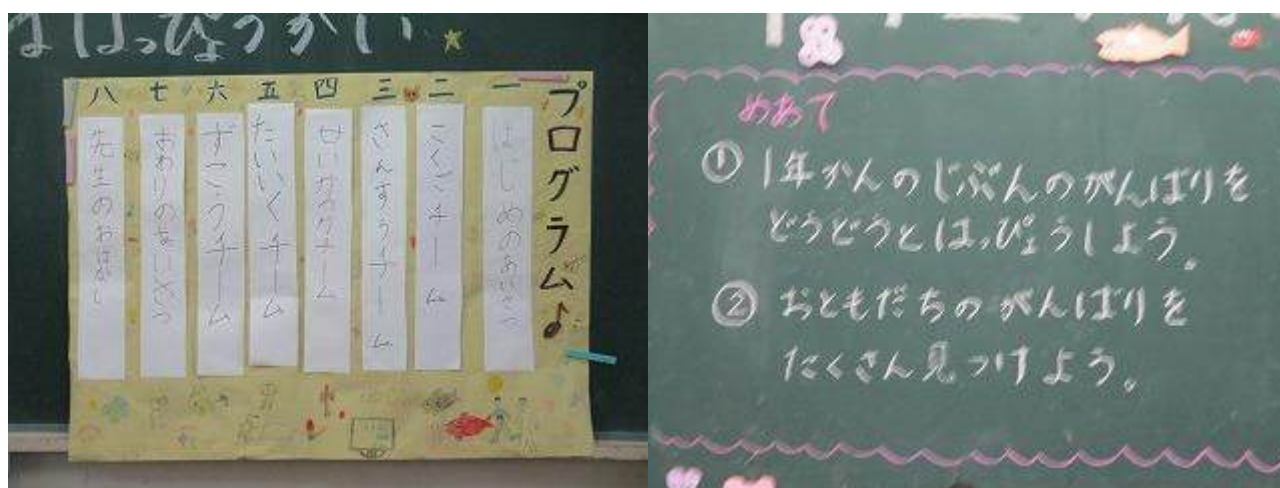 はっぴょうかい
プログラム♪
一 はじめのあいさつ
二 こくごチーム
三 さんすうチーム
四 せいかつチーム
五 たいいくチーム
六 ずこうチーム
七 おわりのあいさつ
八 先生のおはなし
めあて
① 1年かんのじぶんのがんばりを
どうどうとはっぴょうしよう。
② おともだちのがんばりを
たくさん見つけよう。